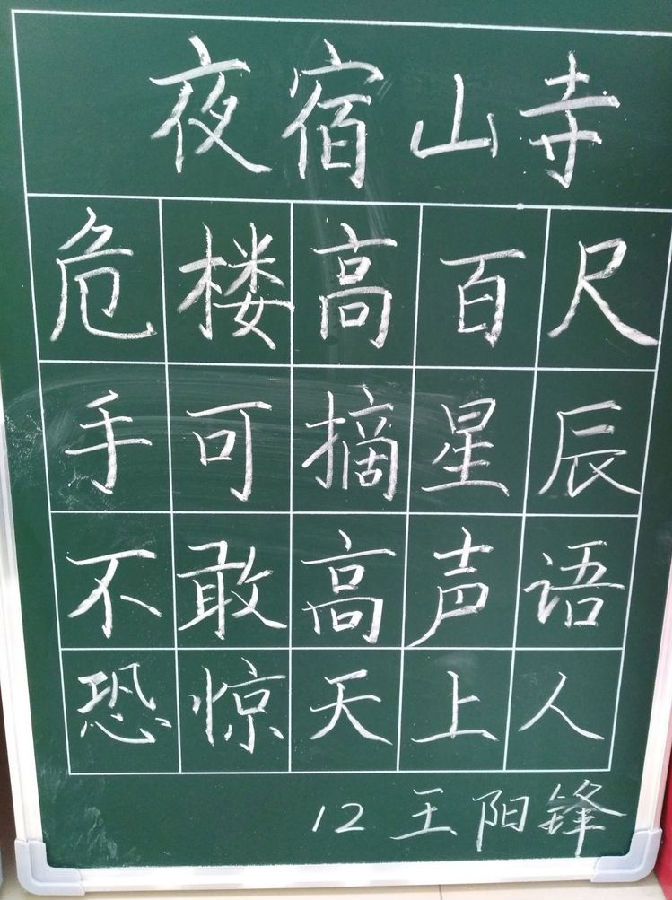 夜宿山寺
危楼高百尺
手可摘星辰
不敢高声语
恐惊天上人
12 王阳锋